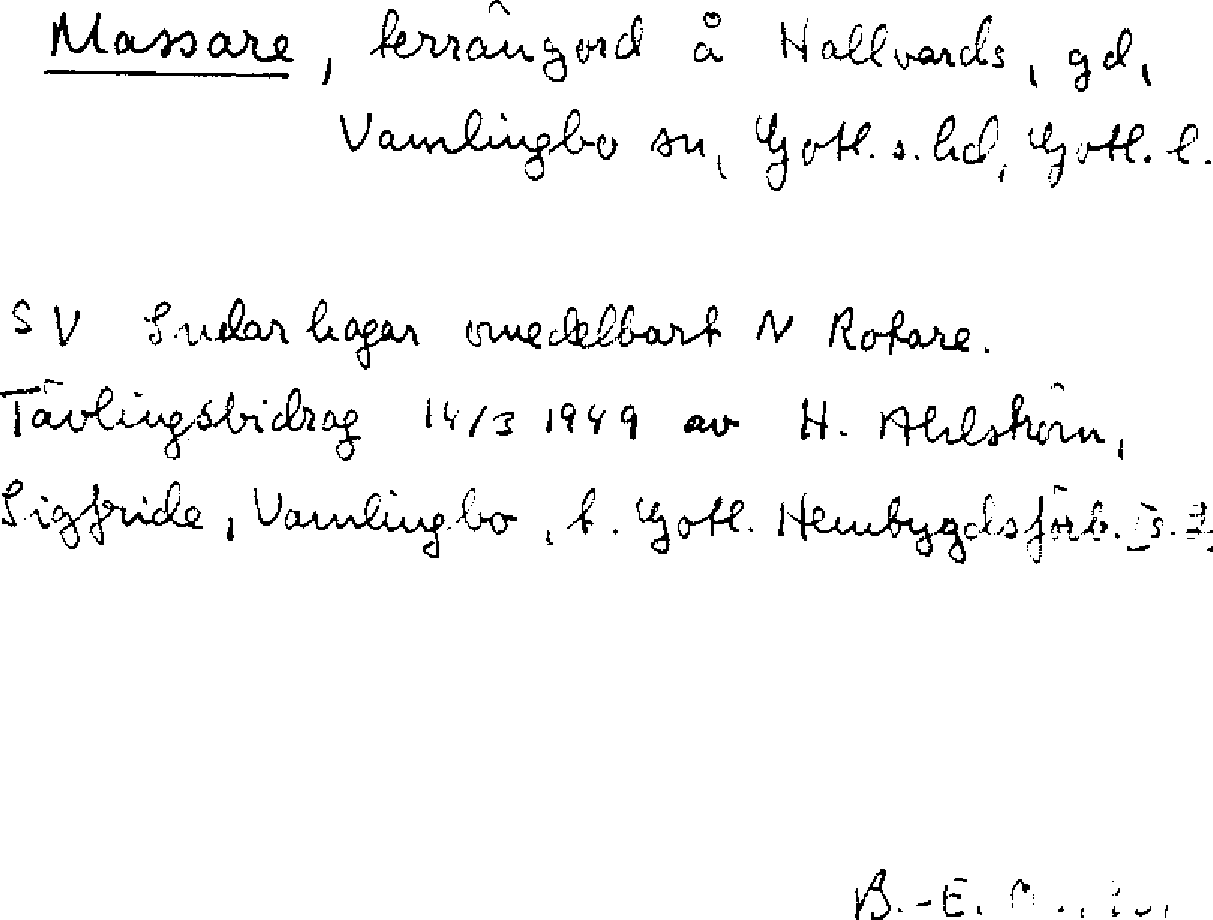 Massare, terrängord å Hallvards, gd,
Vamlingbo sn, Gotl. s. hd, Gotl. l.
SV Sudarhagar omedelbart N Rotare.
Tävlingsbidrag 14/3 1949 av H. Ahlström,
Sigfride, Vamlingbo, t. Gotl. Hembygdsförb. s. 2.
B.-E.